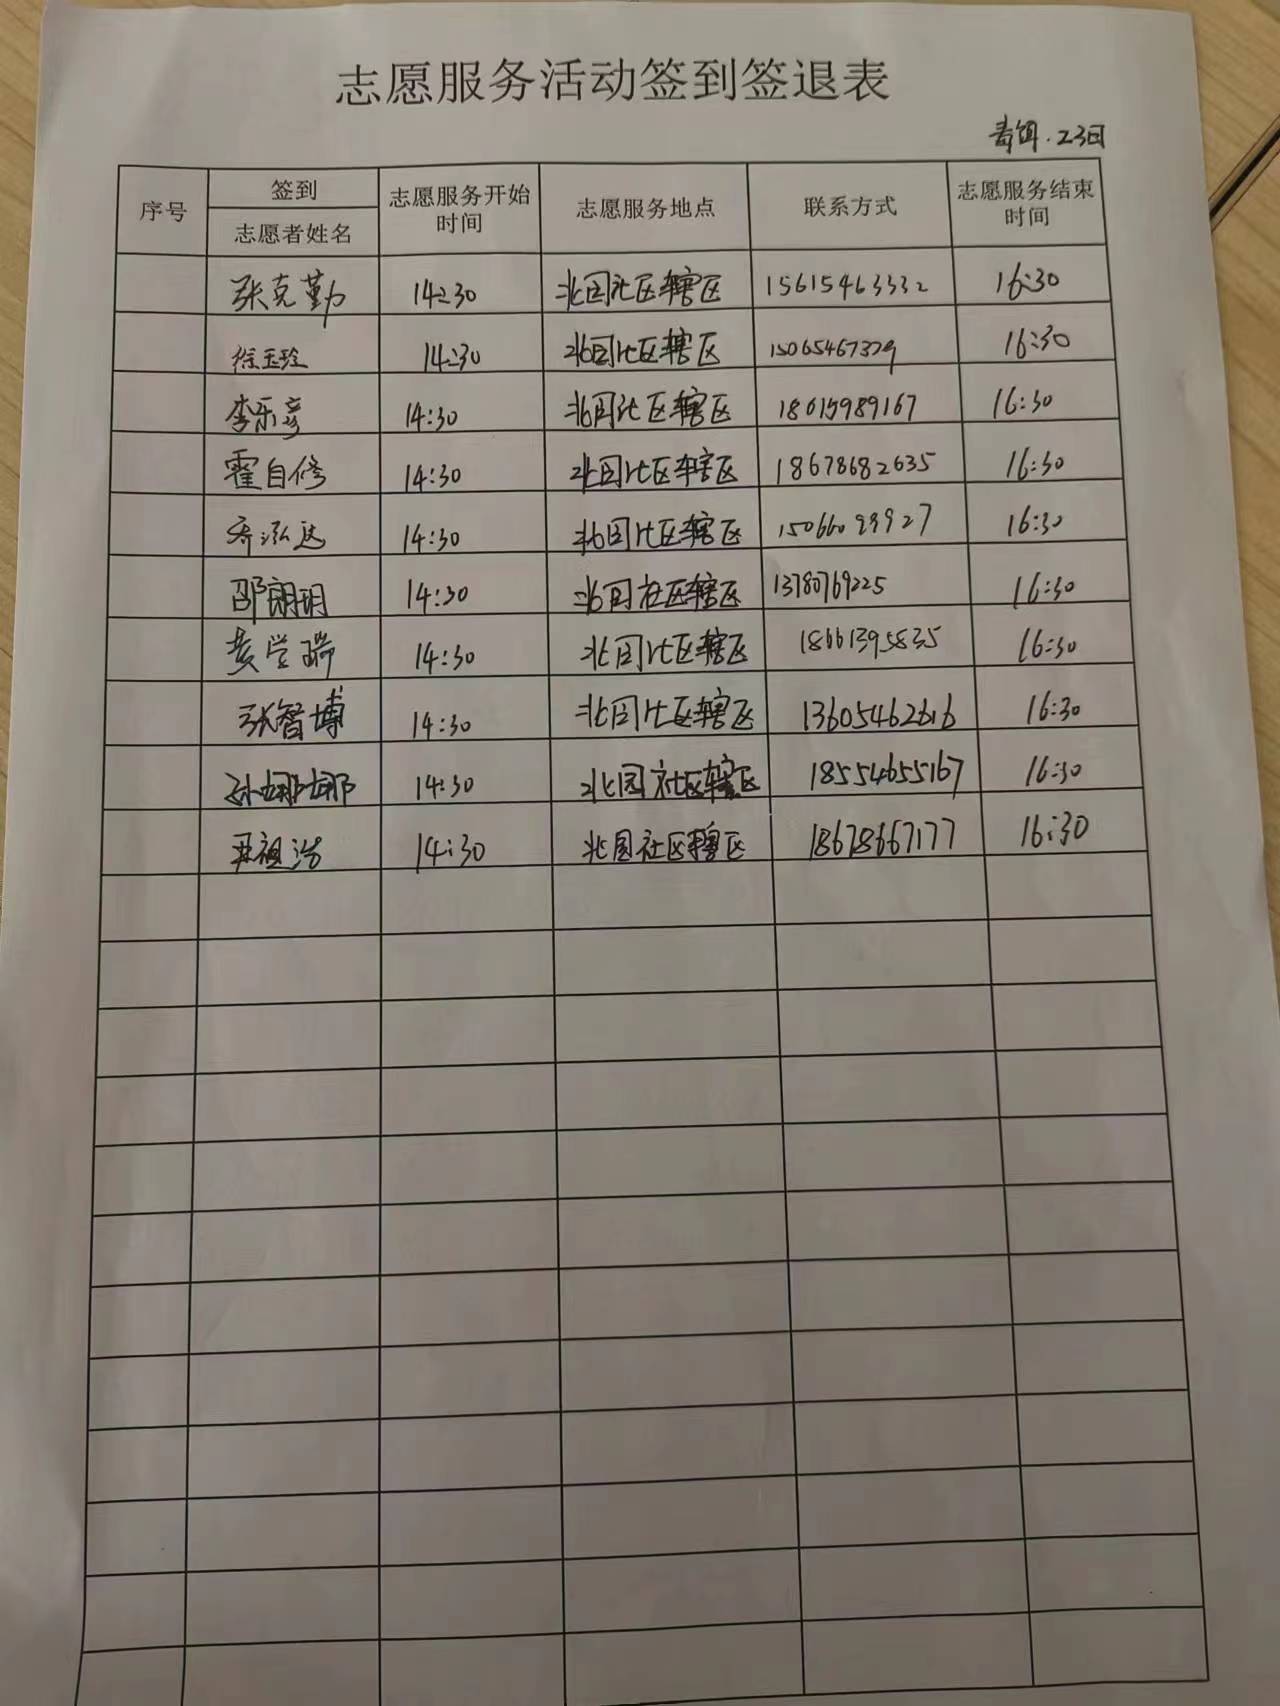 志愿服务活动签到签退表
毒饵.23日
序号 签到 志愿者姓名 志愿服务开始时间 志愿服务地点 联系方式 志愿服务结束时间
张克勤 14:30 北园社区辖区 15615463332 16:30
徐玉玲 14:30 北园社区辖区 15065467379 16:30
李乐彦 14:30 北园社区辖区 18615989167 16:30
霍自修 14:30 北园社区辖区 18678682635 16:30
齐泓达 14:30 北园社区辖区 16:30
邵朗玥 14:30 北园社区辖区 13780769225 16:30
黄学瑞 14:30 北园社区辖区 18661395835 16:30
张智博 14:30 北园社区辖区 13605462616 16:30
孙娜娜 14:30 北园社区辖区 18554655167 16:30
尹祖浩 14:30 北园社区辖区 18678667177 16:30